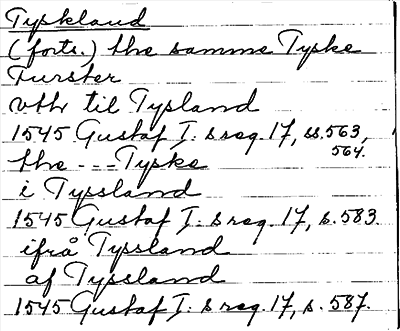 Tyskland
(forts.) the samme Tyske
Furster
vthr til Tysland
1545 Gustaf I: s reg. 17, ss. 563,
564.
the --- Tyske
i Tyssland
1545 Gustaf I: s reg. 17, s. 583.
ifrå Tyssland
af Tyssland
1545 Gustaf I: s reg. 17, s. 587.